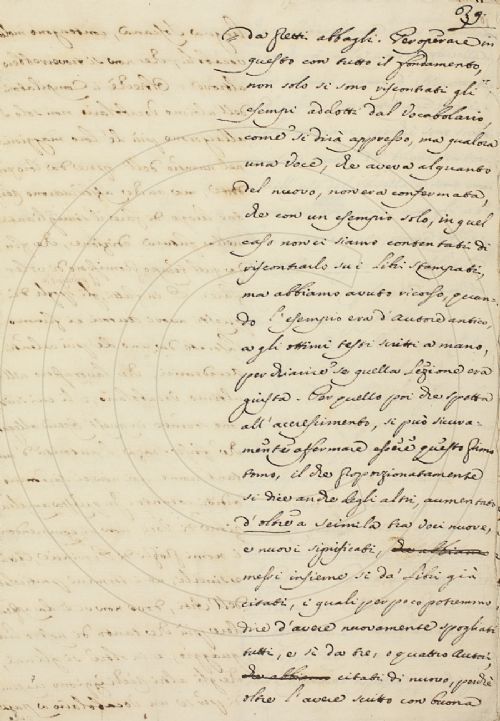 39
da sletti abbagli. Per operare in
questo con tutto il fondamento,
non solo si sono riscontrati gli
esempi addotti dal Vocabolario,
come si dirà appresso, ma qualora
una Voce, che aveva alquanto
del nuovo, non era confermata,
che con un esempio solo, in quel
caso non ci siamo contentati di
riscontrarlo su i Libri Stampati,
ma abbiamo avuto ricorso, quan-
do l'esempio era d'Autore antico,
a gli ottimi testi scritti a mano,
per chiarire se quella Lezione era
giusta. Per quello poi che spetta
all'accrescimento, si può sicura-
mente affermare essere questo primo
tomo, il che proporzionatamente
si dice anche degli altri, aumentato
d'oltre a seimila tra voci nuove,
e nuovi significati, che abbiamo
messi insieme sì da' Libri già
citati, i quali per poco potremmo
dire d'avere nuovamente spogliati
tutti, e sì da tre, o quattro Autori
che abbiamo citati di nuovo, perchè
oltre l'avere scritto con buona